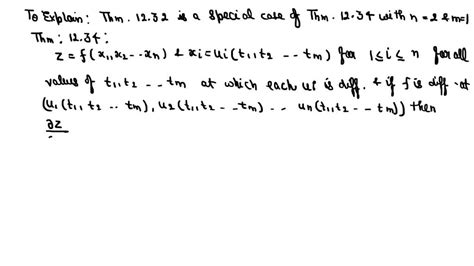 To Explain: Thm. 12.32 is a special case of Thm. 12.34 with n = 2 & m=1
Thm: 12.34:
z = f(x1,x2 -- xn) & xi = ui(t1,t2 -- tm) for 1≤i≤n for all
values of t1,t2 -- tm at which each ui is diff. & if f is diff. at
(u1(t1,t2 -- tm), u2(t1,t2 -- tm) -- un(t1,t2 -- tm)) then
∂z